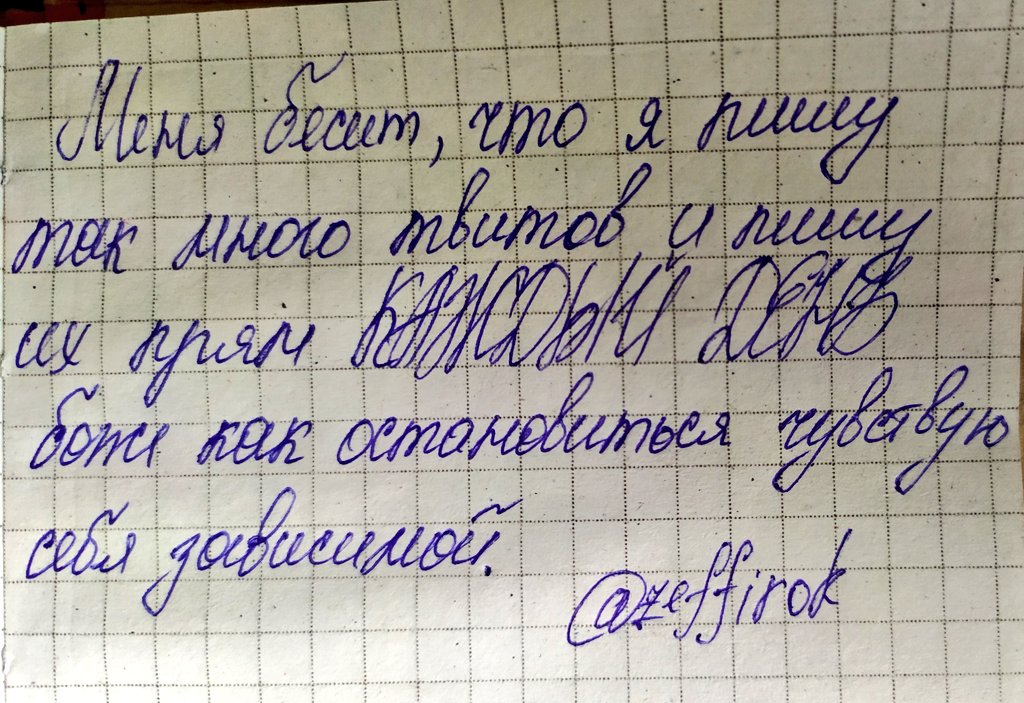 Меня бесит, что я пишу
так много твитов и пишу
их прям КАЖДЫЙ ДЕНЬ
боже как остановиться чувствую
себя зависимой.
@zeffirok